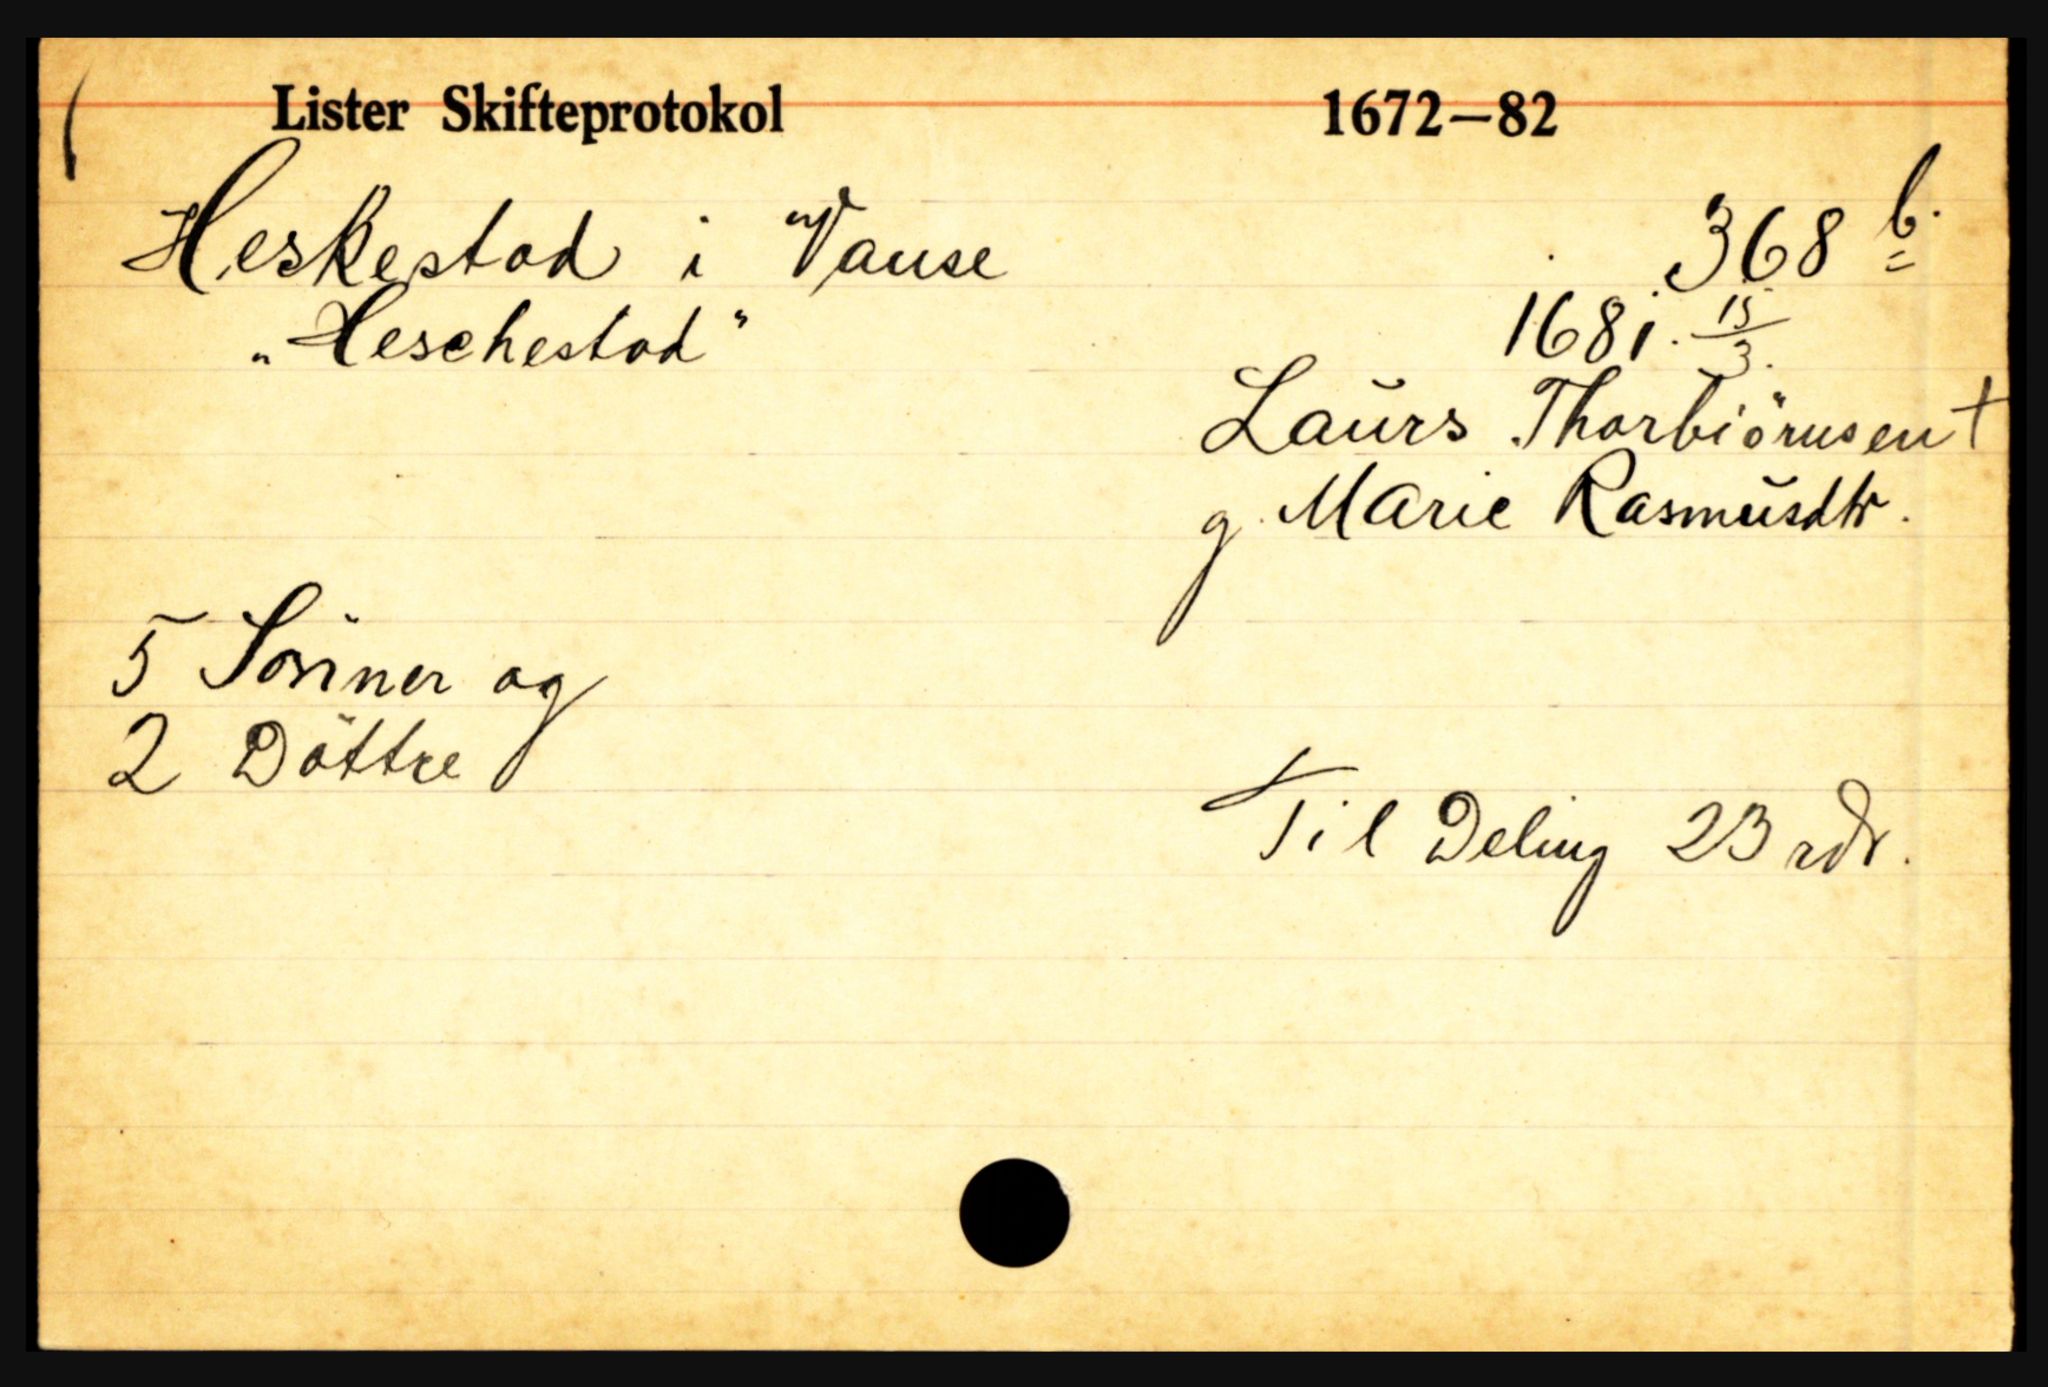 Lister Skifteprotokol 1672—82
Heskestad i Vanse 368 b.
"Heschestad" 1681. 15/3.
Laurs Thorbiörnsen †
g. Marie Rasmusdtr.
5 Sönner og
2 Döttre
Til Deling 23 rdr.